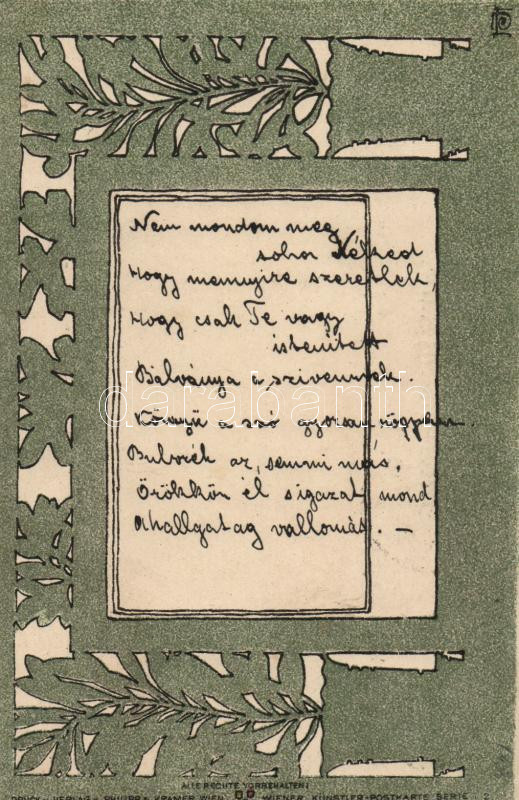 Nem mondom meg
soha Néked
Hogy mennyire szeretlek,
Hogy csak Te vagy
istenitett
Bálványa a szivemnek.
Könnyü a szó gyorsan röppen.
Buborék az, semmi más,
Örökkön él s igazat mond
A hallgatag vallomás. —
darabanth
ALLE RECHTE VORBEHALTEN!
DRUCK u. VERLAG v. PHILIPP & KRAMER WIEN WIENER KÜNSTLER-POSTKARTE SERIE 2